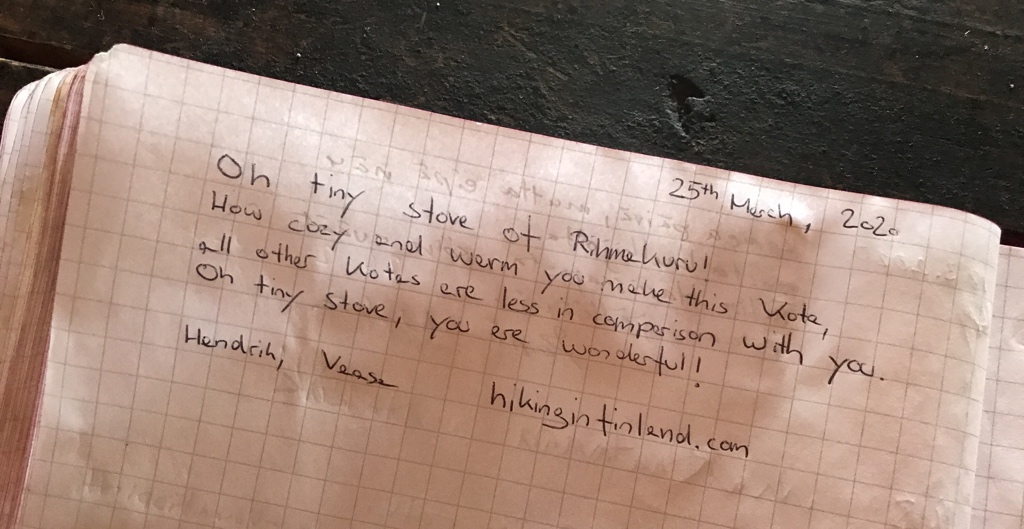 25th March, 2020
Oh tiny stove of Rihmakuru!
How cozy and warm you make this Kota,
all other Kotas are less in comparison with you.
Oh tiny stove, you are wonderful!!
Hendrik, Vaasa
hikinginfinland.com